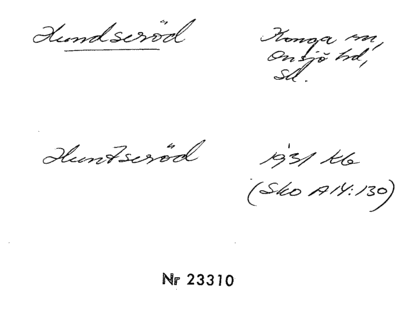 Hundseröd
Konga sn,
Onsjö hd,
Sk.
Huntseröd
1931 Kb
(Sko A14:130)
Nr 23310